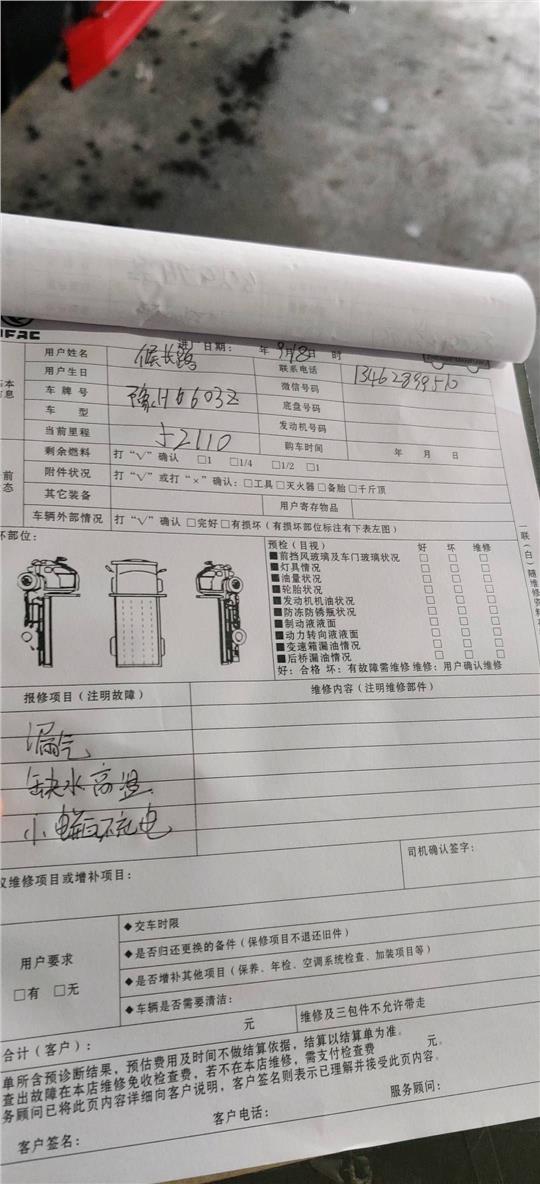 进厂日期： 年 9月18日 时
用户姓名 侯长路 联系电话 13462899510
用户生日 微信号码
车牌号 豫H6603Z 底盘号码
车 型 发动机号码
当前里程 52110 购车时间 年 月 日
剩余燃料 打“√”确认 □1 □1/4 □1/2 □1
附件状况 打“√”或打“×”确认：□工具□灭火器□备胎□千斤顶
其它装备 用户寄存物品
车辆外部情况 打“√”确认 □完好□有损坏（有损坏部位标注有下表左图）
坏部位：
预检（目视） 好 坏 维修
■前挡风玻璃及车门玻璃状况 □ □ □
■灯具情况 □ □ □
■油量状况 □ □ □
■轮胎状况 □ □ □
■发动机机油状况 □ □ □
■防冻防锈瓶状况 □ □ □
■制动液液面 □ □ □
■动力转向液液面 □ □ □
■变速箱漏油情况 □ □ □
■后桥漏油情况 □ □ □
好：合格 坏：有故障需维修 维修：用户确认维修
报修项目（注明故障） 维修内容（注明维修部件）
漏气
缺水高温
小电瓶不充电
议维修项目或增补项目： 司机确认签字：
用户要求
□有 □无
◆交车时限
◆是否归还更换的备件（保修项目不退还旧件）
◆是否增补其他项目（保养、年检、空调系统检查、加装项目等）
◆车辆是否需要清洁： 维修及三包件不允许带走
合计（客户）： 元
单所含预诊断结果，预估费用及时间不做结算依据，结算以结算单为准。
查出故障在本店维修免收检查费，若不在本店维修，需支付检查费 元。
务顾问已将此页内容详细向客户说明，客户签名则表示已理解并接受此页内容。
客户签名： 客户电话： 服务顾问：